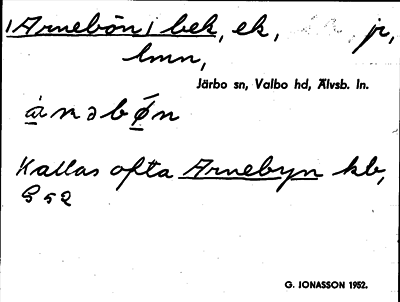 (Arnebön) bek, ek, jr,
lmn,
Järbo sn, Valbo hd, Älvsb. ln.
ànəbǿn
Kallas ofta Arnebyn kb,
G. IONASSON 1952.